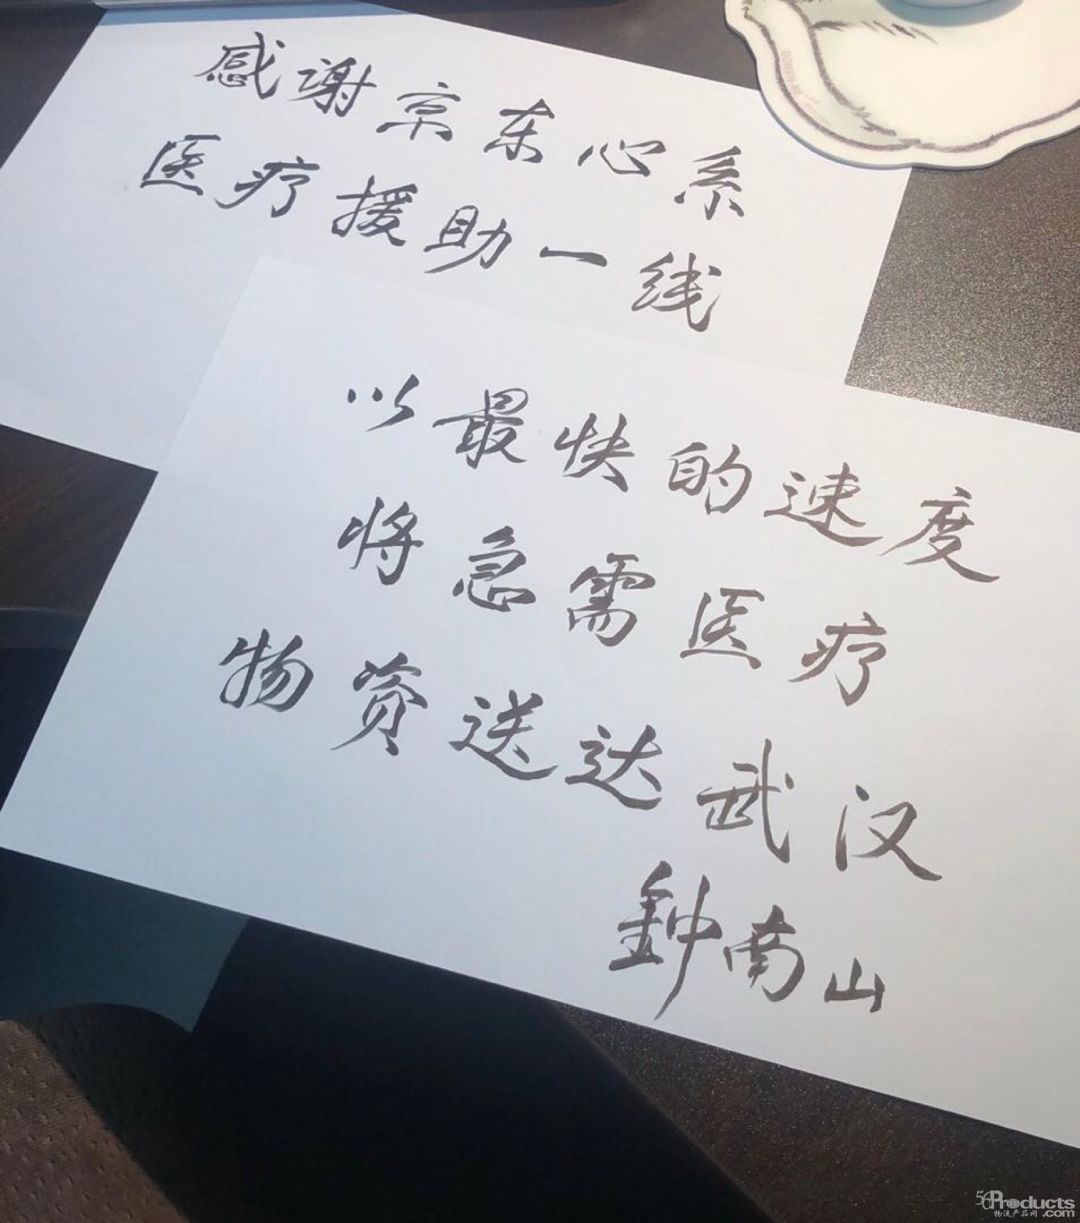 感谢京东心系
医疗援助一线
以最快的速度
将急需医疗
物资送达武汉
鈡南山
56Products
物流产品网.com